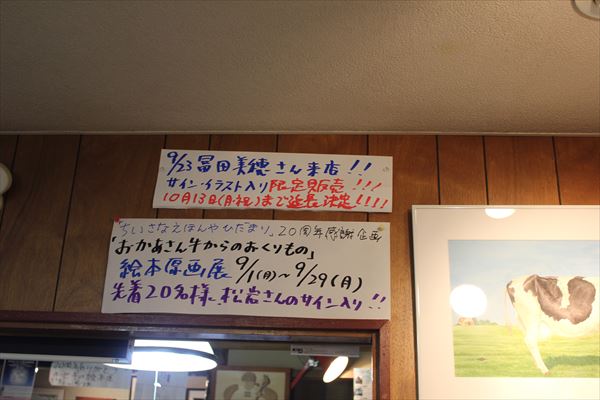 9/23 冨田美穂さん来店!!
サイン・イラスト入り限定販売!!!
10月13日(月・祝)まで延長決定!!!!
「ちいさなえほんやひだまり」20周年感謝企画
「おかあさん牛からのおくりもの」
絵本原画展 9/1(月)~9/29(月)
先着20名様に松岩さんのサイン入り!!